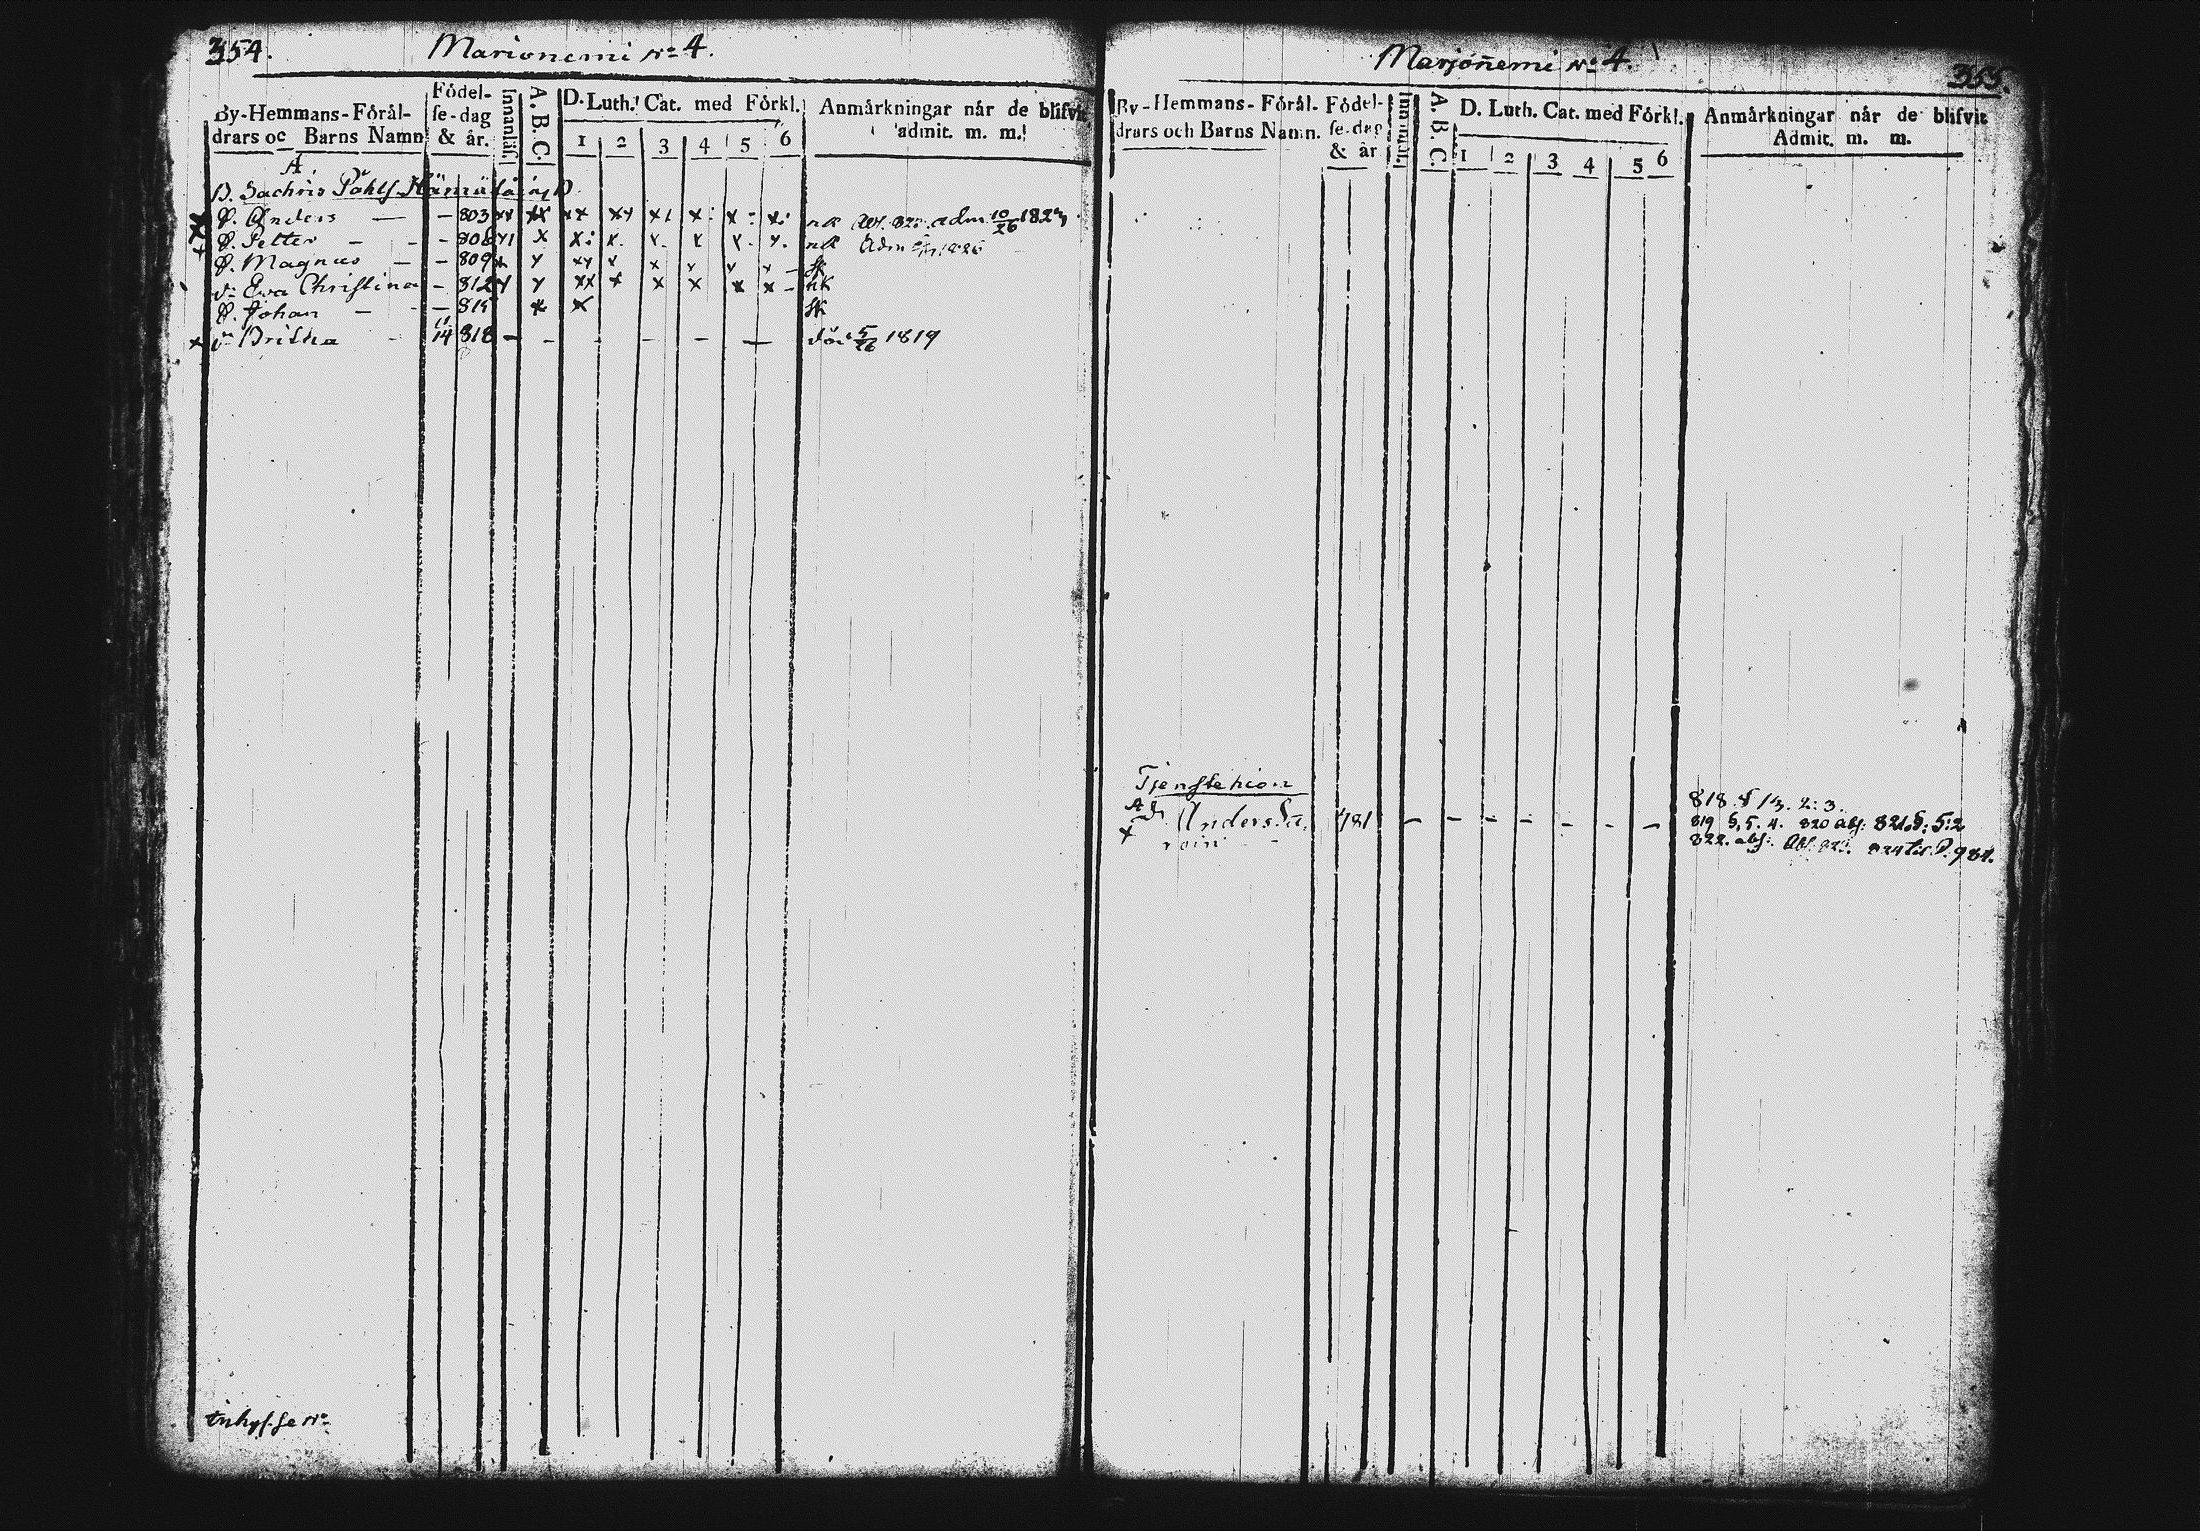 354.
Marionemi No 4.
By-Hemmans-Föräl-
drars oc Barns Namn
Födel-
se-dag
& år.
Innanläs.
A. B. C.
D. Luth. Cat. med Förkl.
1 2 3 4 5 6
Anmärkningar när de blifvit
admit. m. m.
A.
B. Sachris Påhls
S. Anders — — 803 xx xx xx xx x1 x: x: x: nk adm 10/26 182
S. Petter - - - 808 x1 x x: x. x. x x. x. nk Adm
S. Magnus — - 809 x x xx x x x x x - sk
dr Ewa Christina - 812 x x xx x x x x x - nk
S. Johan - - — 815 x x sk
x dr Britha - 11/14 818 - - - - - — död 5/26 1819
Inhys. se No
Marjoñemi No 4.
355.
By-Hemmans-Föräl-
drars och Barns Namn.
Födel-
se-dag
& år
A. B. C.
D. Luth. Cat. med Förkl.
1 2 3 4 5 6
Anmärkningar när de blifvit
Admit. m. m.
Tjenstehion
Anders
818. § 13. 2: 3.
819 §. 5. 4. 820 abs: 821. §: 5:2
822. abs: 824 til P. 984.